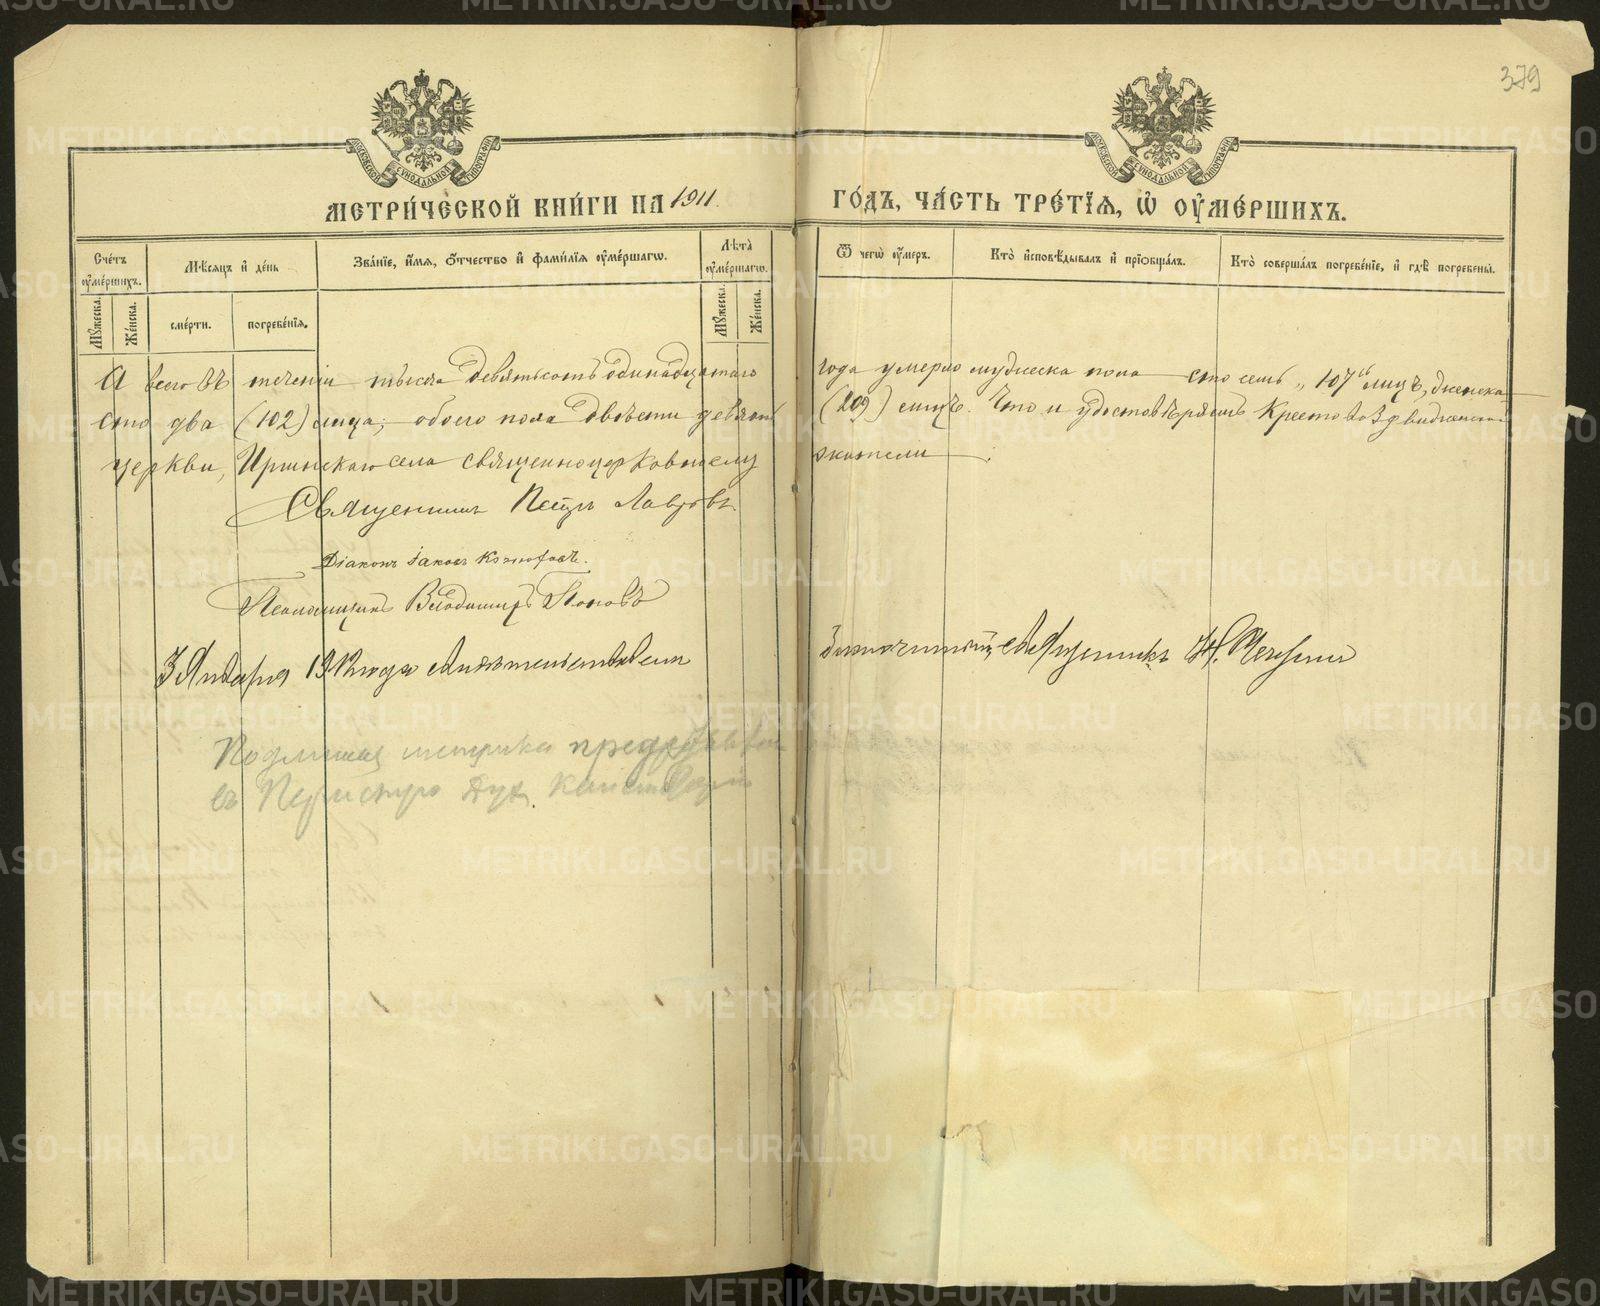 379
МОСКОВСКОЙ СѴНОДАЛЬНОЙ ТИПОГРАФІИ
МОСКОВСКОЙ СѴНОДАЛЬНОЙ ТИПОГРАФІИ
МЕТРИ́ЧЕСКОЙ КНИ́ГИ НА 1911 ГО́ДЪ, ЧА́СТЬ ТРЕ́ТІѦ, Ѡ ОУМЕ́РШИХЪ.
Сче́тъ оуме́ршихъ.
Мѣ́сяцъ и де́нь
Зва́ніе, и́мя, о́тчество и фами́лія оуме́ршагѡ.
Лѣта̀ оуме́ршагѡ.
Ѿ чегѡ̀ оу́меръ.
Кто̀ исповѣ́дывалъ и пріобща́лъ.
Кто̀ соверша́лъ погребе́ніе, и гдѣ̀ погребены̀.
Му́жеска.
Же́нска.
сме́рти.
погребе́нія.
Му́жеска.
Же́нска.
А всего въ теченіи тысяча девятьсотъ одинадцатаго года умерло мужеска пола сто семь „107" лицъ, женска
сто два (102) лица; обоего пола двѣсти девять (209) лицъ. Что и удостовѣряемъ Крестовоздвиженской
церкви, Иргинскаго села священноцерковнослужители
Священникъ Петръ Лавровъ
Діаконъ Іаковъ
Псаломщикъ Владимиръ Поповъ
3 Января 1912 года свидѣтельствовалъ Благочинный, священникъ Н.
Подлинная метрика представлена
въ Пермскую Дух. Консисторію
METRIKI.GASO-URAL.RU